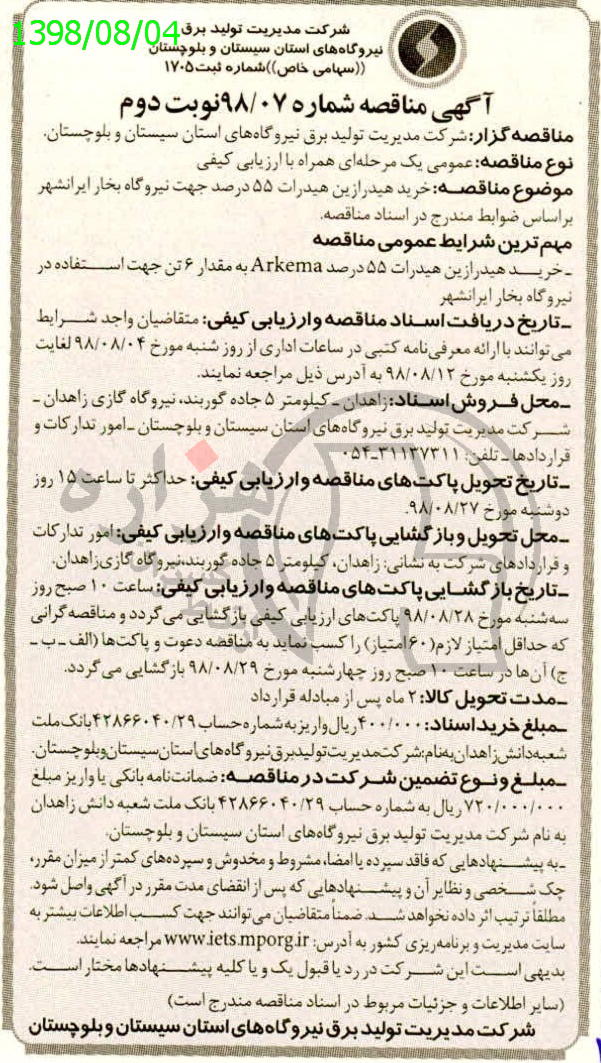 1398/08/04
شرکت مدیریت تولید برق
نیروگاه‌های استان سیستان و بلوچستان
((سهامی خاص))شماره ثبت۱۷۰۵
آگهی مناقصه شماره ۹۸/۰۷نوبت دوم
مناقصه گزار: شرکت مدیریت تولید برق نیروگاه‌های استان سیستان و بلوچستان.
نوع مناقصه: عمومی یک مرحله‌ای همراه با ارزیابی کیفی
موضوع مناقصه: خرید هیدرازین هیدرات ۵۵ درصد جهت نیروگاه بخار ایرانشهر
براساس ضوابط مندرج در اسناد مناقصه.
مهم ترین شرایط عمومی مناقصه
ـ خرید هیدرازین هیدرات ۵۵ درصد Arkema به مقدار ۶ تن جهت استفاده در
نیروگاه بخار ایرانشهر
ـ تاریخ دریافت اسناد مناقصه و ارزیابی کیفی: متقاضیان واجد شرایط
می‌توانند با ارائه معرفی‌نامه کتبی در ساعات اداری از روز شنبه مورخ ۹۸/۰۸/۰۴ لغایت
روز یکشنبه مورخ ۹۸/۰۸/۱۲ به آدرس ذیل مراجعه نمایند.
ـ محل فروش اسناد: زاهدان ـ کیلومتر ۵ جاده گوربند، نیروگاه گازی زاهدان ـ
شرکت مدیریت تولید برق نیروگاه‌های استان سیستان و بلوچستان ـ امور تدارکات و
قراردادها ـ تلفن: ۳۱۱۳۷۳۱۱ـ۰۵۴
ـ تاریخ تحویل پاکت های مناقصه و ارزیابی کیفی: حداکثر تا ساعت ۱۵ روز
دوشنبه مورخ ۹۸/۰۸/۲۷.
ـ محل تحویل و بازگشایی پاکت های مناقصه و ارزیابی کیفی: امور تدارکات
و قراردادهای شرکت به نشانی: زاهدان، کیلومتر ۵ جاده گوربند،نیروگاه گازی زاهدان.
ـ تاریخ بازگشایی پاکت های مناقصه و ارزیابی کیفی: ساعت ۱۰ صبح روز
سه‌شنبه مورخ ۹۸/۰۸/۲۸ پاکت‌های ارزیابی کیفی بازگشایی می‌گردد و مناقصه گرانی
که حداقل امتیاز لازم(۶۰ امتیاز) را کسب نماید به مناقصه دعوت و پاکت‌ها (الف ـ ب ـ
ج) آن‌ها در ساعت ۱۰ صبح روز چهارشنبه مورخ ۹۸/۰۸/۲۹ بازگشایی می‌گردد.
ـ مدت تحویل کالا: ۲ ماه پس از مبادله قرارداد
ـ مبلغ خرید اسناد: ۴۰۰/۰۰۰ ریال واریز به شماره حساب ۴۲۸۶۶۰۴۰/۲۹ بانک ملت
شعبه دانش زاهدان به نام: شرکت مدیریت تولید برق نیروگاه‌های استان سیستان و بلوچستان.
ـ مبلغ و نوع تضمین شرکت در مناقصه: ضمانت‌نامه بانکی یا واریز مبلغ
۷۲۰/۰۰۰/۰۰۰ ریال به شماره حساب ۴۲۸۶۶۰۴۰/۲۹ بانک ملت شعبه دانش زاهدان
به نام شرکت مدیریت تولید برق نیروگاه‌های استان سیستان و بلوچستان.
ـ به پیشنهادهایی که فاقد سپرده یا امضا، مشروط و مخدوش و سپرده‌های کمتر از میزان مقرر،
چک شخصی و نظایر آن و پیشنهادهایی که پس از انقضای مدت مقرر در آگهی واصل شود.
مطلقاً ترتیب اثر داده نخواهد شد. ضمناً متقاضیان می‌توانند جهت کسب اطلاعات بیشتر به
سایت مدیریت و برنامه‌ریزی کشور به آدرس: www.iets.mporg.ir مراجعه نمایند.
بدیهی است این شرکت در رد یا قبول یک و یا کلیه پیشنهادها مختار است.
(سایر اطلاعات و جزئیات مربوط در اسناد مناقصه مندرج است)
شرکت مدیریت تولید برق نیروگاه های استان سیستان و بلوچستان
هزاره